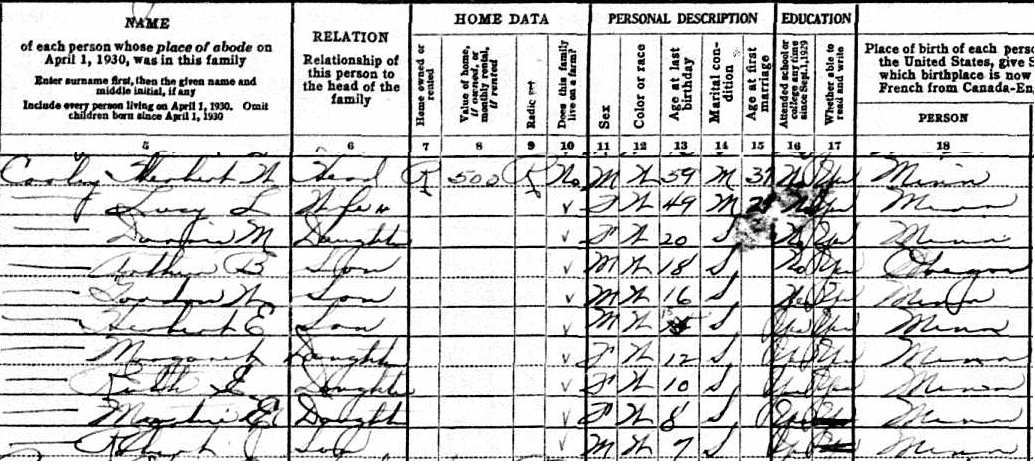 HOME DATA PERSONAL DESCRIPTION EDUCATION
NAME
of each person whose place of abode on
April 1, 1930, was in this family
Enter surname first, then the given name and
middle initial, if any
Include every person living on April 1, 1930. Omit
children born since April 1, 1930
RELATION
Relationship of
this person to
the head of the
family
Home owned or
rented
Value of home,
if owned, or
monthly rental,
if rented
Radio set
Does this family
live on a farm?
Sex
Color or race
Age at last
birthday
Marital con-
dition
Age at first
marriage
Attended school or
college any time
since Sept. 1, 1929
Whether able to
read and write
Place of birth of each perso
the United States, give S
which birthplace is now
French from Canada-En
PERSON
5 6 7 8 9 10 11 12 13 14 15 16 17 18
Herbert W Head R 500 R No M W 59 M 37 No Yes Minn
Lucy L Wife H ✓ F W 49 M No Yes Minn
M Daughter ✓ F W 20 S No Yes Minn
B Son ✓ M W 18 S No Yes Oregon
Gordon W Son ✓ M W 16 S Yes Minn
Herbert E Son ✓ M W S Yes Yes Minn
Margaret Daughter ✓ F W 12 S Yes Yes Minn
Ruth Daughter ✓ F W 10 S Yes Yes Minn
E Daughter ✓ F W 8 S Yes Minn
Robert J Son ✓ M W 7 S Minn